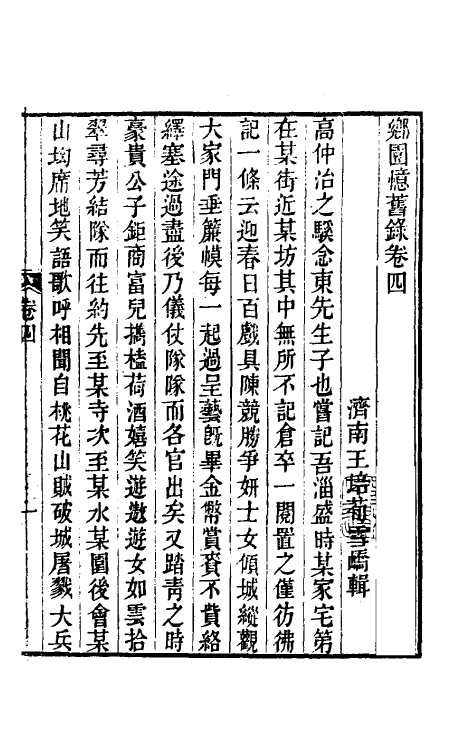 鄉園憶舊錄卷四
濟南王培荀雪嶠輯
高仲治之騱念東先生子也嘗記吾淄盛時某家宅第
在某街近某坊其中無所不記倉卒一閱置之僅彷彿
記一條云迎春日百戲具陳競勝爭妍士女傾城縱觀
大家門垂簾幙每一起過呈藝旣畢金幣賞賚不貲絡
繹塞途過盡後乃儀仗隊隊而各官出矣又踏靑之時
豪貴公子鉅商富兒攜榼荷酒嬉笑遊遨遊女如雲拾
翠尋芳結隊而往約先至某寺次至某水某園後會某
山均席地笑語歌呼相聞自桃花山賊破城屠戮大兵
卷四
一